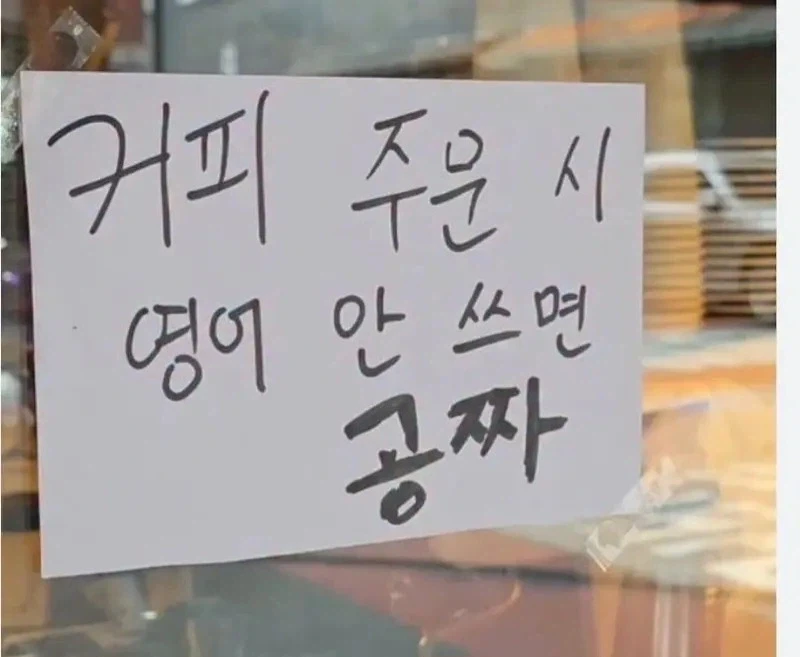 커피 주문 시
영어 안 쓰면
공짜